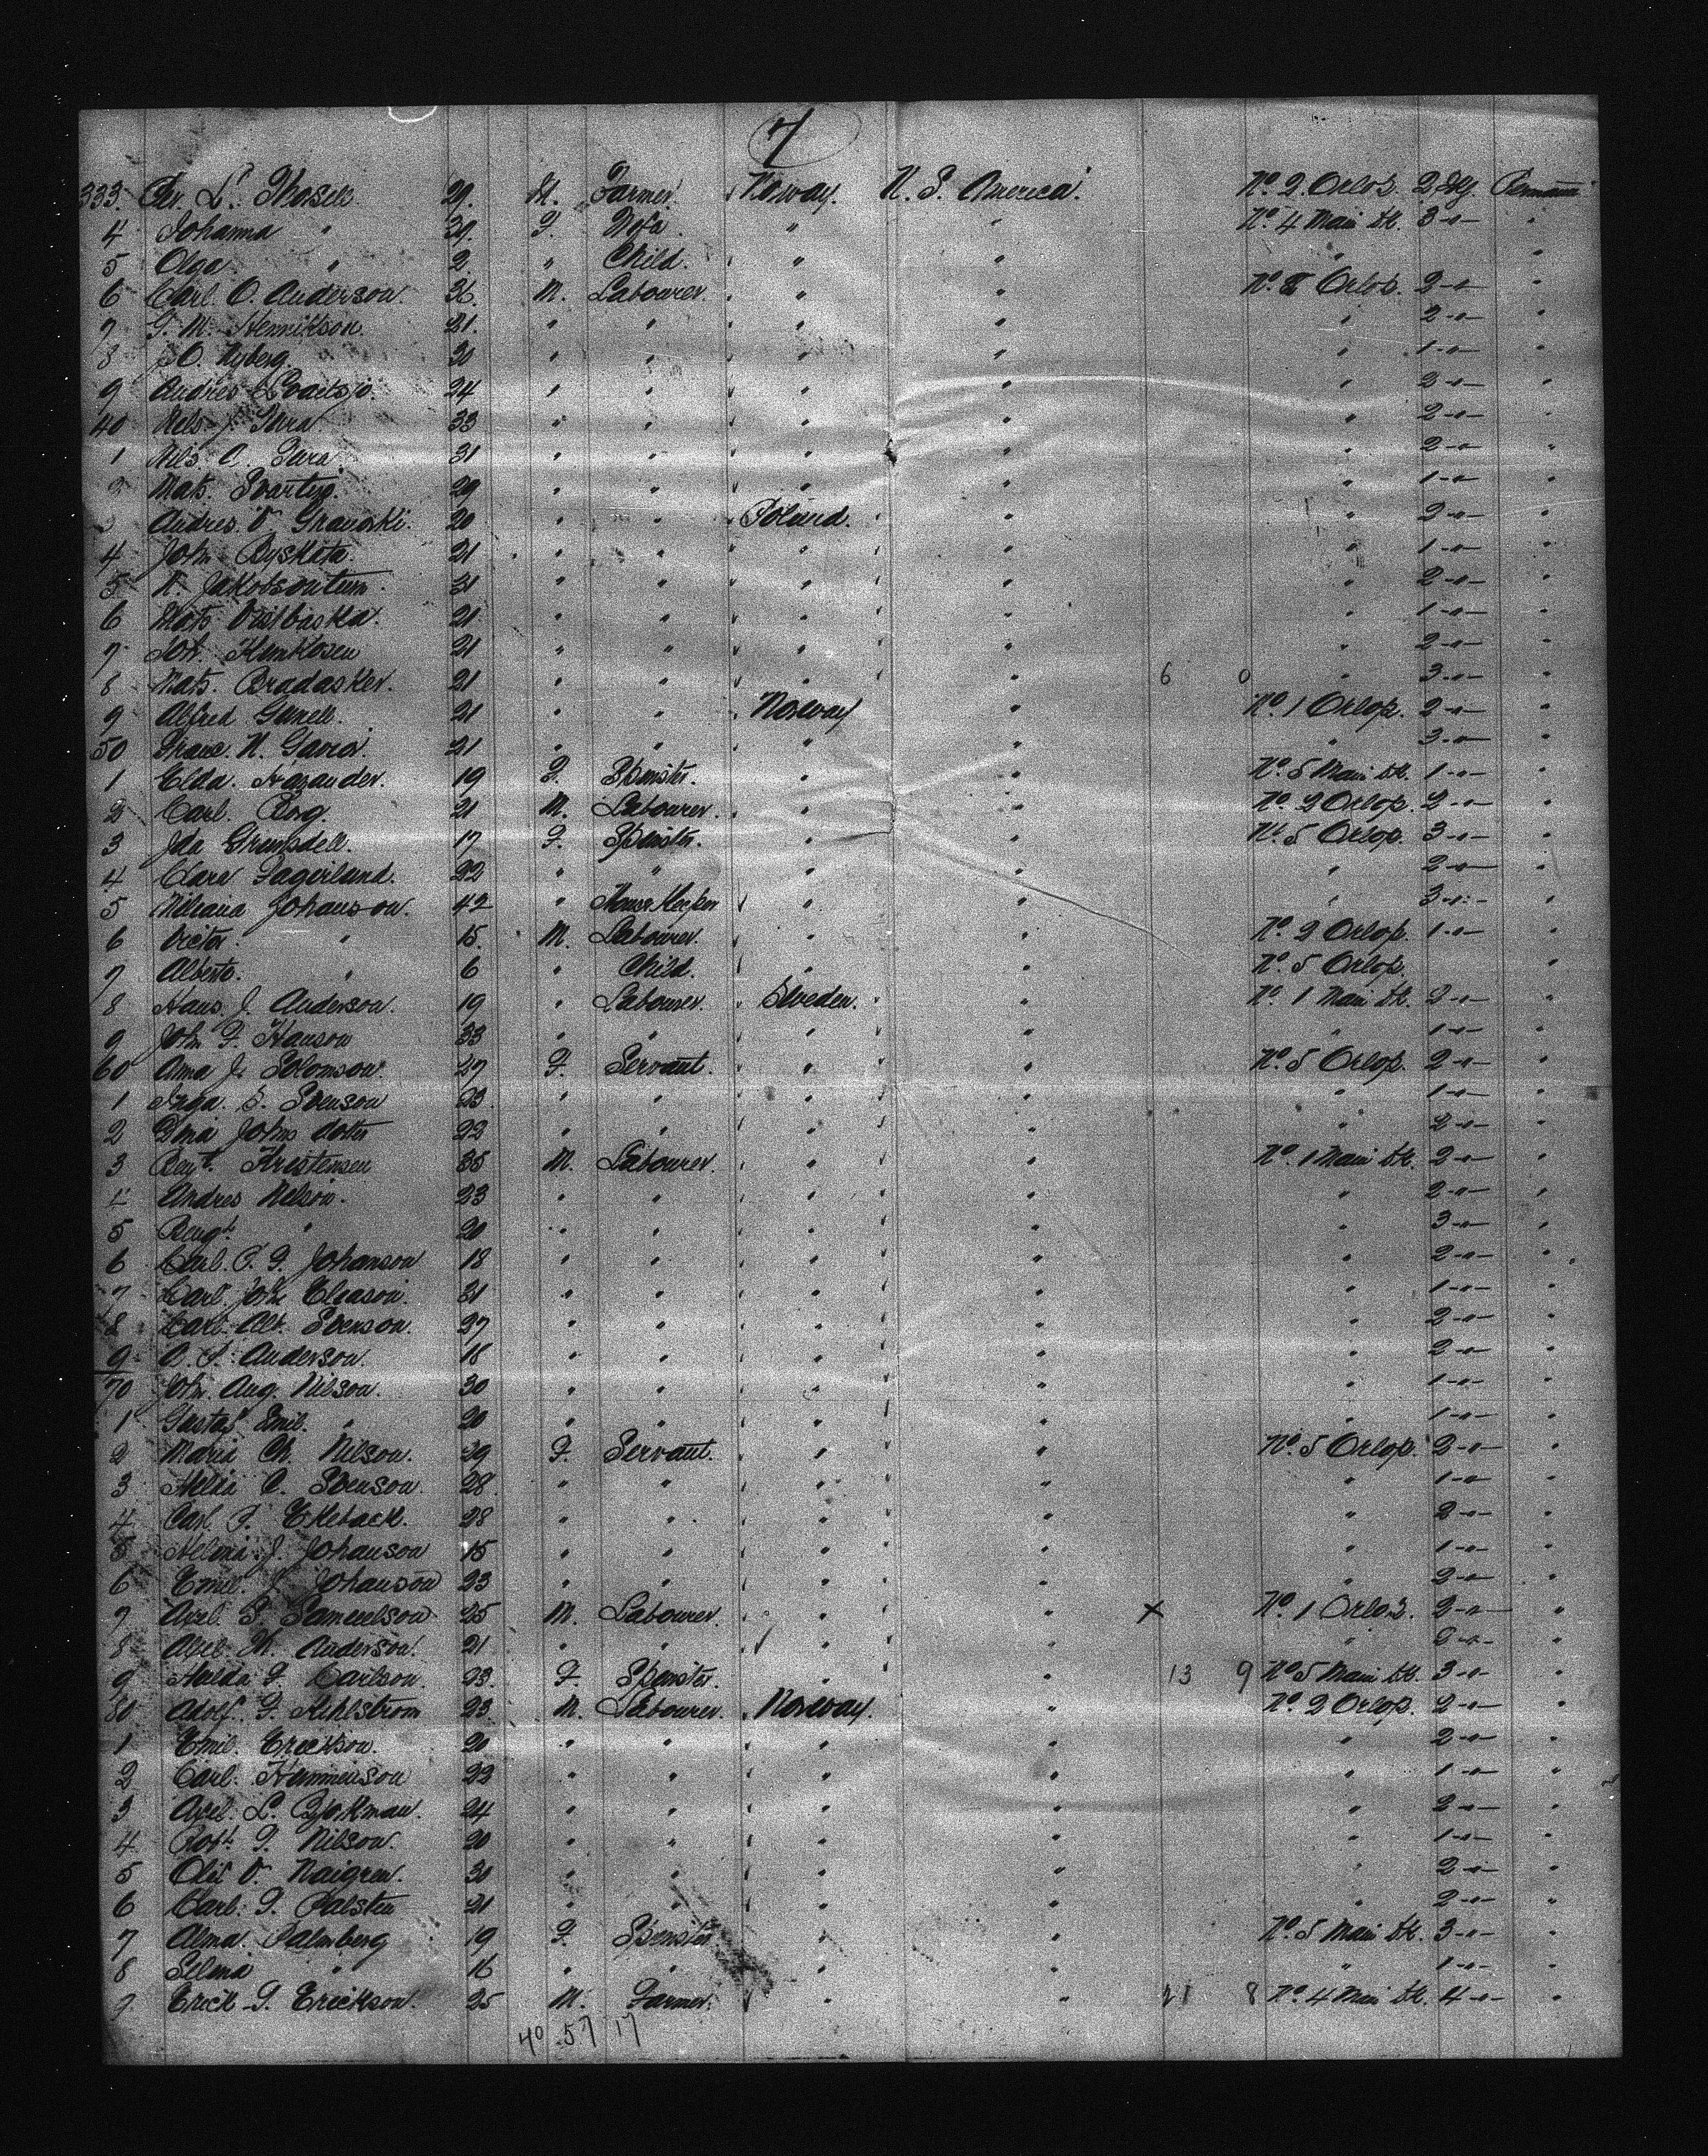 7
333 Chr. L. Thosell 29. M. Farmer Norway. U. S. America. No. 2 Orlop. 2 Pkg.
4 Johanna " 29. F. Wife " No. 4 Main Dk. 3 " "
5 Olga " 2 " Child. " " " "
6 Carl. O. Anderson. 36. M. Labourer. " " Orlop. 2 " "
7 G. M. Henrikson. 21. " " " " " 2 " "
8 J. O. Nyberg. 30 " " " " " 1 " "
9 Andres 24 " " " " " 2 " "
40 Nels J. 33 " " " " " 2 " "
1 Nils. A. 31 " " " " " 2 " "
2 Mats. 29 " " " " " 1 " "
3 Andres. V. Granoski. 20 " " Poland. " " 2 " "
4 John 21 " " " " " 1 " "
5 31 " " " " " 2 " "
6 Mats 21 " " " " " 1 " "
7 Joh. 21 " " " " " 2 " "
8 Mats. Bradasker. 21 " " " " 6 0 " 3 " "
9 Alfred 21 " " Norway " No. 1 Orlop. 2 " "
50 21 " " " " " 3 " "
1 Elda. 19 F. Spinster. " " No. 5 Main Dk. 1 " "
2 Carl. Borg. 21 M. Labourer. " " No. 2 Orlop. 2 " "
3 Ida 17 F. Spinster. " " No. 5 Orlop. 3 " "
4 Clara Lagerlund. 22 " " " " " 2 " "
5 Johanson. 42 " House Keeper " " " 3 " "
6 Victor. " 15. M. Labourer. " " No. 2 Orlop. 1 " "
7 Alberto. " 6 " Child. " " No. 5 Orlop. "
8 Hans. J. Anderson. 19 " Labourer. Sweden. " No. 1 Main Dk. 2 " "
9 John F. Hanson 33 " " " " " 1 " "
60 Anna J. Solomson. 27 F. Servant. " " No. 5 Orlop. 2 " "
1 Inga. S. Svenson 23. " " " " " 1 " "
2 Johns doter 22 " " " " " 2 " "
3 Bengt. Kristensen 35 M. Labourer. " " No. 1 Main Dk. 2 " "
4 Andres Nelson. 23 " " " " " 2 " "
5 Bengt. " 20 " " " " " 3 " "
6 Carl. P. G. Johanson 18 " " " " " 2 " "
7 Carl. John Eleason. 31 " " " " " 1 " "
8 Carl. Alb. Svenson. 27 " " " " " 2 " "
9 A. P. Anderson. 18 " " " " " 2 " "
70 Joh. Aug. Nilson. 30 " " " " " 1 " "
1 Gustaf Emil. " 20 " " " " " 1 " "
2 Maria Ch. Nilson. 29 F. Servant. " " No. 5 Orlop. 2 " "
3 C. Svenson. 28. " " " " " 1 " "
4 Carl. F. Ekeback. 28 " " " " " 2 " "
5 Helena J. Johanson 15 " " " " " 1 " "
6 Emil. J. Johanson 23 " " " " " 2 " "
7 Axel. G. Samuelson 25 M. Labourer. " " x No. 1 Orlop. 2 " "
8 Axel. M. Anderson. 21 " " " " " 2 " "
9 Hulda F. Carlson. 23. F. Spinster. " " 13 9 No. 5 Main Dk. 3 " "
80 Adolf. G. Kihlstrom 23. M. Labourer. Norway. " No. 2 Orlop. 2 " "
1 Emil. Erickson. 20 " " " " " 2 " "
2 Carl. 22 " " " " " 1 " "
3 Axel. L. Bjorkman. 24 " " " " " 2 " "
4 Robt. G. Nilson. 20 " " " " " 1 " "
5 Olof V. 30 " " " " " 2 " "
6 Carl. G. Palsten 21 " " " " " 2 " "
7 Alma. Palmberg 19 F. Spinster " " No. 5 Main Dk. 3 " "
8 Selma " 16 " " " " " 1 " "
9 Erick G. Erickson. 25 M. Farmer. " " 21 8 No. 4 Main Dk. 4 " "
40 57 17